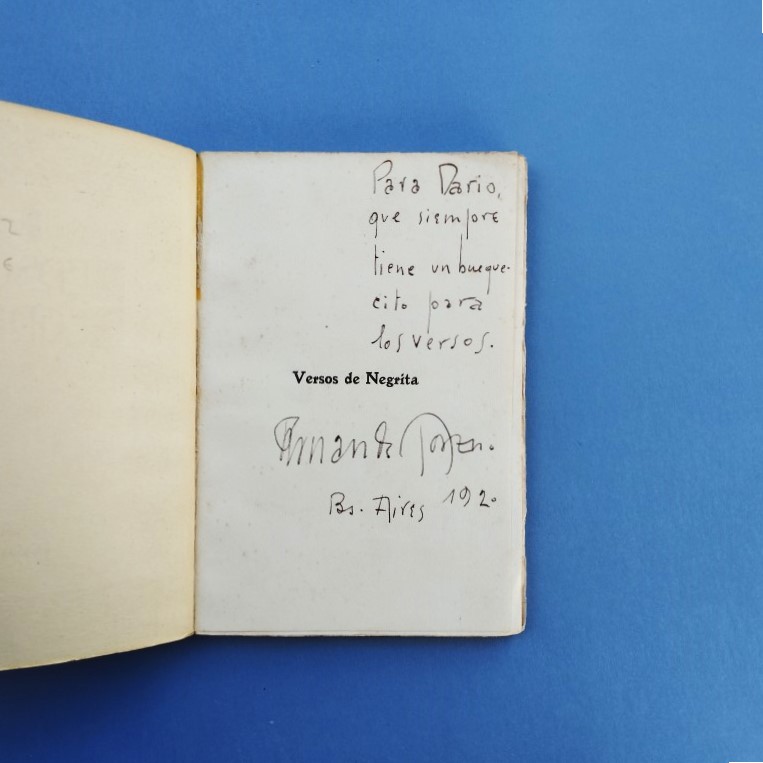 Para Dario,
que siempre
tiene un bueque-
cito para
los versos.
Versos de Negrita
Bs. Aires 1920